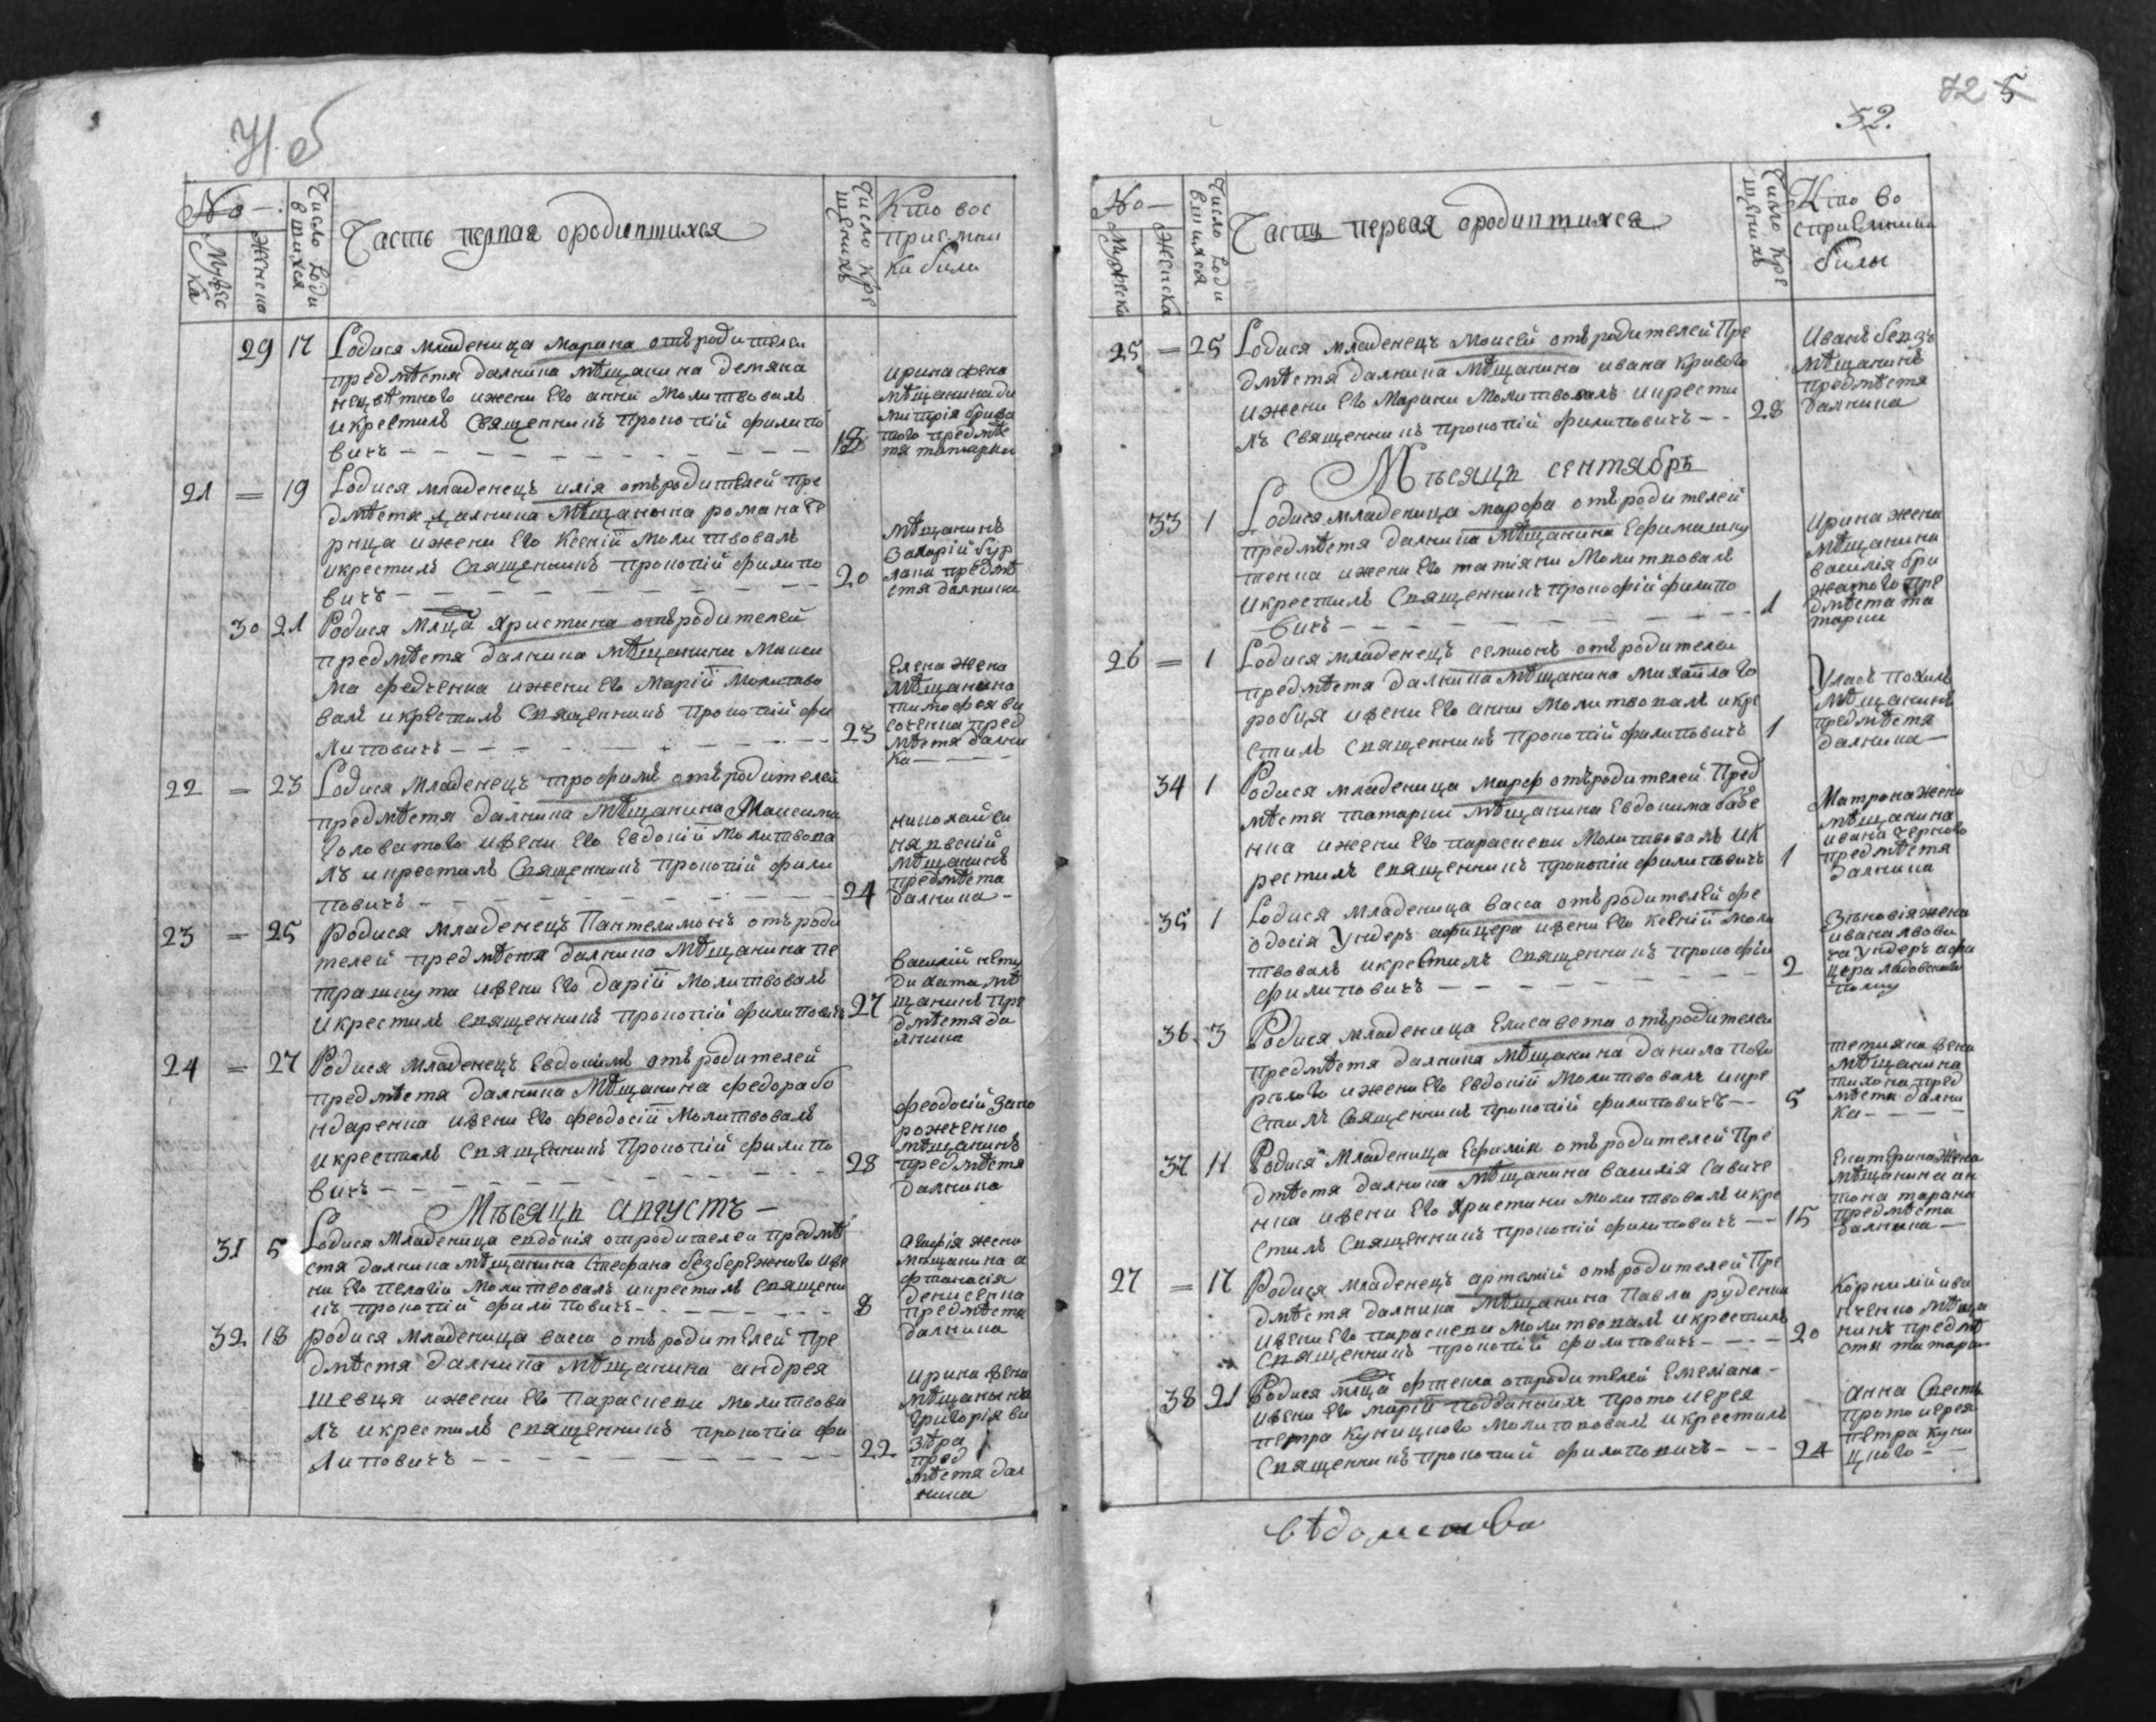 71 б
No
Мужес
ка
Женска
Число Роди
вшихся
Часть первая ородившихся
Число Кре
щених
Кто вос
приемни
ки били
29 17 Родися младеница Марина отъ родителеи
предмѣстя далника мѣщанина демяна
нецвѣтного ижени Его анни Молитвовалъ
икрестилъ Священникъ прокопій филипо
вичъ 18
ирина жена
мѣщанина ди
митрія
того предмѣ
тя татарки
21 = 19 Родися младенецъ илія отъ родителей пре
дмѣстя далника Мѣщанина романа Ге
рица ижени Его Ксеніи молитвовалъ
икрестилъ Священникъ прокопій филипо
вичъ 20
мѣщанинъ
Захарій бур
лака предмѣ
стя далника
30 21 Родися Млца Христина отъ родителей
предмѣстя далника мѣщанина Макси
ма федченка ижени Его Маріи Молитво
валъ икрестилъ Священникъ прокопій фи
липовичъ 23
Елена жена
мѣщанина
тимофея ви
соченка пред
мѣстя дални
ка
22 = 23 Родися Младенецъ трофимъ отъ родителей
предмѣстя далника мѣщанина Максима
Головатого ижени Его Евдокіи молитвова
лъ икрестилъ Священникъ прокопій фили
повичъ 24
николай си
нявскій
мѣщанинъ
предмѣста
далника
23 = 25 Родися Младенецъ Пантелимонъ отъ роди
телей предмѣстя далника мѣщанина пе
тра шкута ижени Его даріи Молитвовалъ
икрестилъ священникъ прокопій филиповичъ 27
василій нету
дихата мѣ
щанинъ пре
дмѣстя да
лника
24 = 27 Родися младенецъ Евдокимъ отъ родителей
предмѣстя далника мѣщанина федора бо
ндаренка ижени Его феодосіи Молитвовалъ
икрестилъ Священникъ прокопій филипо
вичъ 28
феодосій запо
рожченко
мѣщанинъ
предмѣстя
далника
Мѣсяцъ августъ
31 5 Родися Младеница евдокія отродителеи предмѣ
стя далника мѣщанина Стефана безбережного иже
ни Его пелагіи молитвовалъ икрестилъ священи
къ прокопій филиповичъ 8
Агафія жена
мѣщанина а
фанасія
денисенка
предмѣстя
далника
32 18 родися младеница васа отъ родителей пре
дмѣстя далника мѣщанина андрея
шевця ижени Его Параскеви молитвова
лъ икрестилъ священникъ прокопій фи
липовичъ 22
ирина жена
мѣщанина
григорія ви
зѣра
пред
мѣстя дал
ника
72 5
52.
No
Мужеска
Женска
Число Роди
вшихся
Часть первая ородившихся
Число Кре
щенихъ
Кто во
сприемники
били
25 = 25 Родися младенецъ Моисей отъ родителей Пре
дмѣстя далника мѣщанина ивана кривого
ижени Его Марини Молитвовалъ икрести
лъ Священникъ прокопій филиповичъ 28
Иванъ
мѣщанинъ
предмѣстя
далника
Мѣсяцъ сентябръ
33 1 Родися младеница марфа отъ родителей
предмѣстя далника мѣщанина Ефима шку
тенка ижени Его татіяни Молитвовалъ
икрестилъ Священникъ прокофій филипо
вичъ 1
Ирина жена
мѣщанина
василія бри
жатого пре
дмѣста та
тарки
26 = 1 Родися младенецъ семионъ отъ родителеи
предмѣстя далника мѣщанина михайла го
робця ижени Его анни молитвовалъ икре
стилъ Священникъ прокопій филиповичъ 1
Уласъ похилъ
мѣщанинъ
предмѣстя
далника
34 1 Родися младеница марф отъ родителей Пред
мѣстя татарки мѣщанина Евдокима бабе
нка ижени Его параскеви Молитвовалъ ик
рестилъ священникъ прокопій филиповичъ 1
Матрона жена
мѣщанина
ивана черного
предмѣстя
далника
35 1 Родися младеница васса отъ родителей фе
одосія Ундеръ афицера ижени Его Ксеніи моли
твовалъ икрестилъ священникъ прокофій
филиповичъ 2
Зѣновія жена
ивана лвови
ча Ундеръ афи
цера ладовского
полку
36 3 Родися младеница Елисавета отъ родителеи
предмѣстя далника мѣщанина данила пого
рѣлого ижени Его Евдокіи молитвовалъ икре
стилъ Священникъ прокопій филиповичъ 5
тетияна жена
мѣщанина
тихона пред
мѣстя дални
ка
37 11 Родися Младеница Ефимія отъ родителей Пре
дмѣстя далника мѣщанина василія савиче
нка ижени Его Христини молитвовалъ икре
стилъ Священникъ прокопій филиповичъ 15
Екатерина жена
мѣщанина ан
тона тарана
предмѣста
далника
27 = 17 Родися младенецъ артемій отъ родителей Пре
дмѣстя далника мѣщанина Павла руденка
ижени Его параскеви молитвовалъ икрестилъ
Священникъ прокопій филиповичъ 20
Корнилій ива
нченко мѣща
нинъ предмѣ
стя татарки
38 21 Родися млца фтекла отродителей Емеліана
ижени Его маріи подданнихъ протоиерея
петра куницкого молитвовалъ икрестилъ
Священникъ прокопий филиповичъ 24
анна
протоиерея
петра куни
цкого
вѣдомства